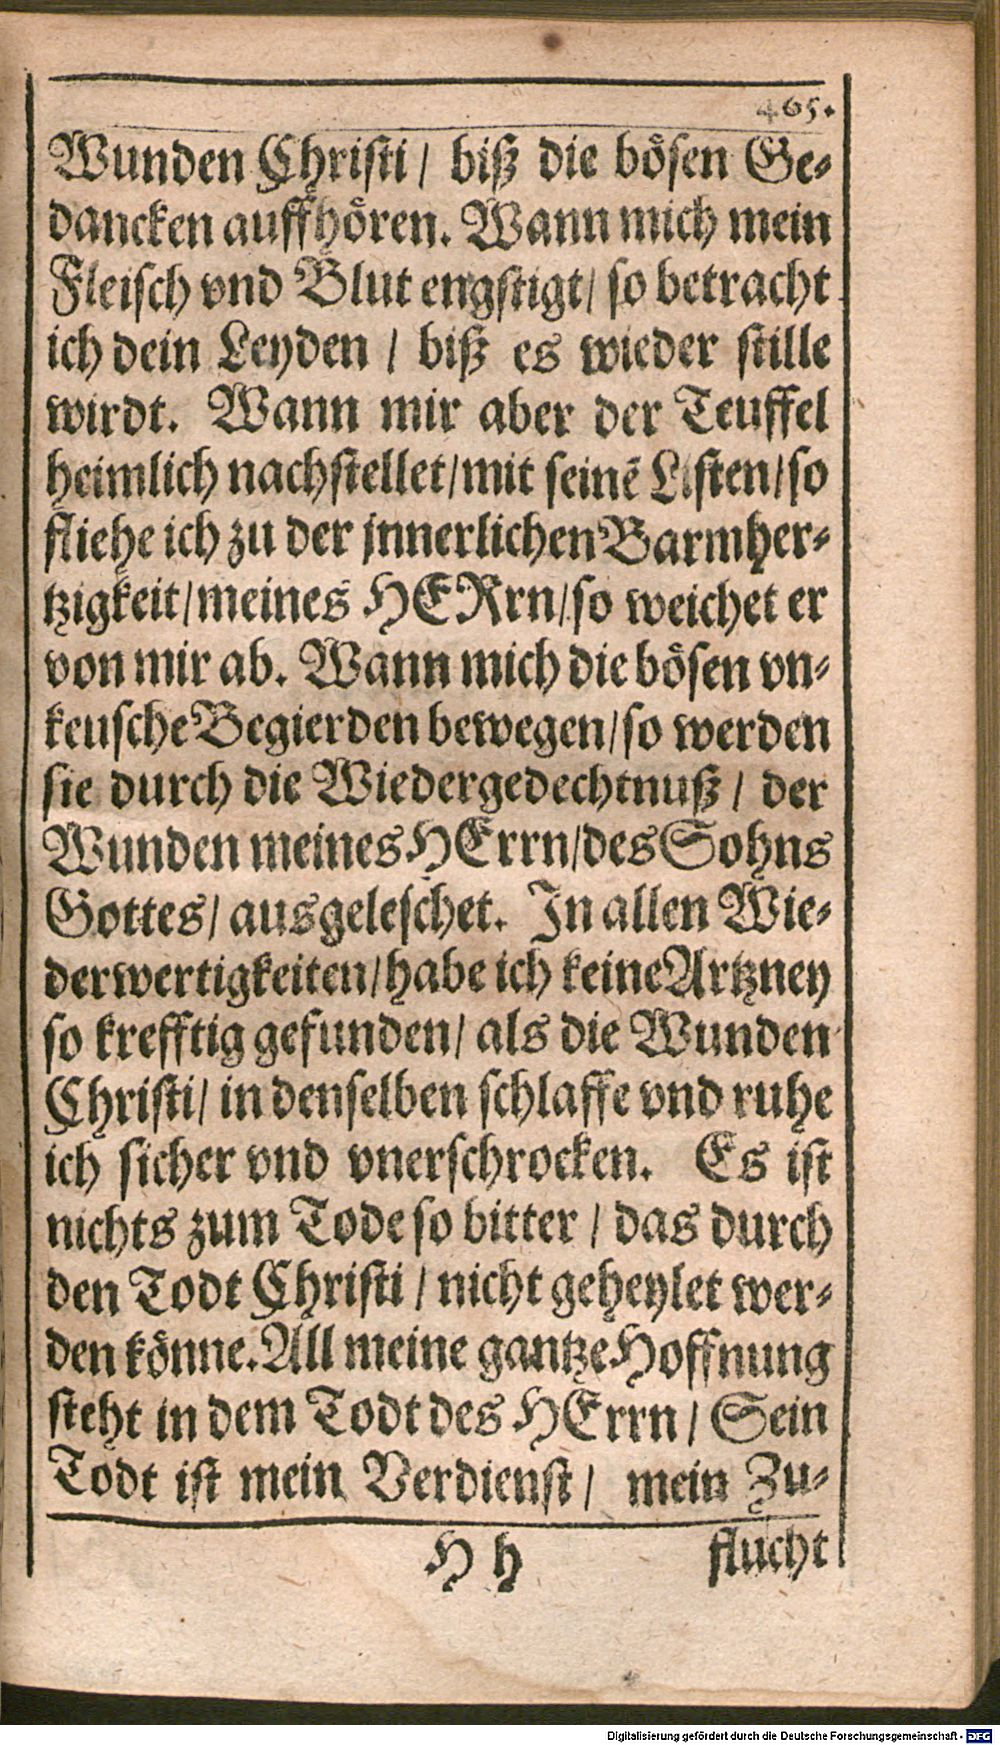 465.
Wunden Christi / biß die bösen Ge-
dancken auffhören. Wann mich mein
Fleisch vnd Blut engstigt / so betracht
ich dein Leyden / biß es wieder stille
wirdt. Wann mir aber der Teuffel
heimlich nachstellet / mit seinē Listen / so
fliehe ich zu der jnnerlichen Barmher-
tzigkeit / meines HERrn / so weichet er
von mir ab. Wann mich die bösen vn-
keusche Begierden bewegen / so werden
sie durch die Wiedergedechtnuß / der
Wunden meines HErrn / des Sohns
Gottes / ausgeleschet. In allen Wie-
derwertigkeiten / habe ich keine Artzney
so krefftig gefunden / als die Wunden
Christi / in denselben schlaffe vnd ruhe
ich sicher vnd vnerschrocken. Es ist
nichts zum Tode so bitter / das durch
den Todt Christi / nicht geheylet wer-
den könne. All meine gantze Hoffnung
steht in dem Todt des HErrn / Sein
Todt ist mein Verdienst / mein Zu-
H h flucht
Digitalisierung gefördert durch die Deutsche Forschungsgemeinschaft - DFG